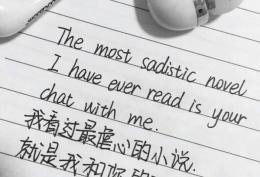 The most sadistic novel
I have ever read is your
chat with me.
我看过最虐心的小说.
就是我和你的